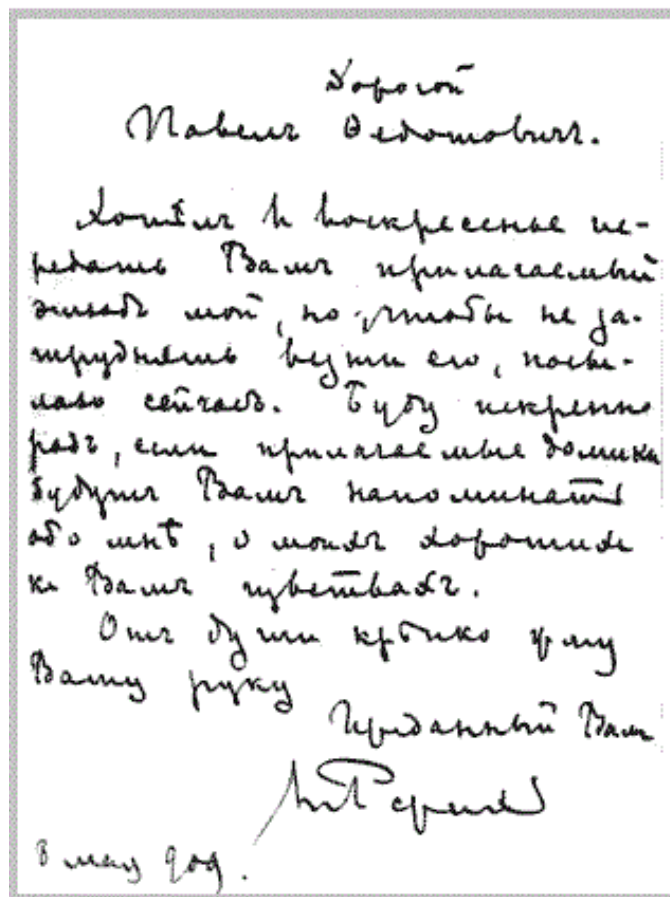 Дорогой
Павелъ Ѳедотовичъ.
Хотѣлъ в воскресенье пе-
редать Вамъ прилагаемый
этюдъ мой, но, чтобы не за-
труднять везти его, посы-
лаю сейчасъ. Буду искренно
радъ, если прилагаемые домики
будутъ Вамъ напоминать
обо мнѣ, о моихъ хорошихъ
къ Вамъ чувствахъ.
Отъ души крѣпко жму
Вашу руку
Преданный Вамъ
НРерихъ
8 мая